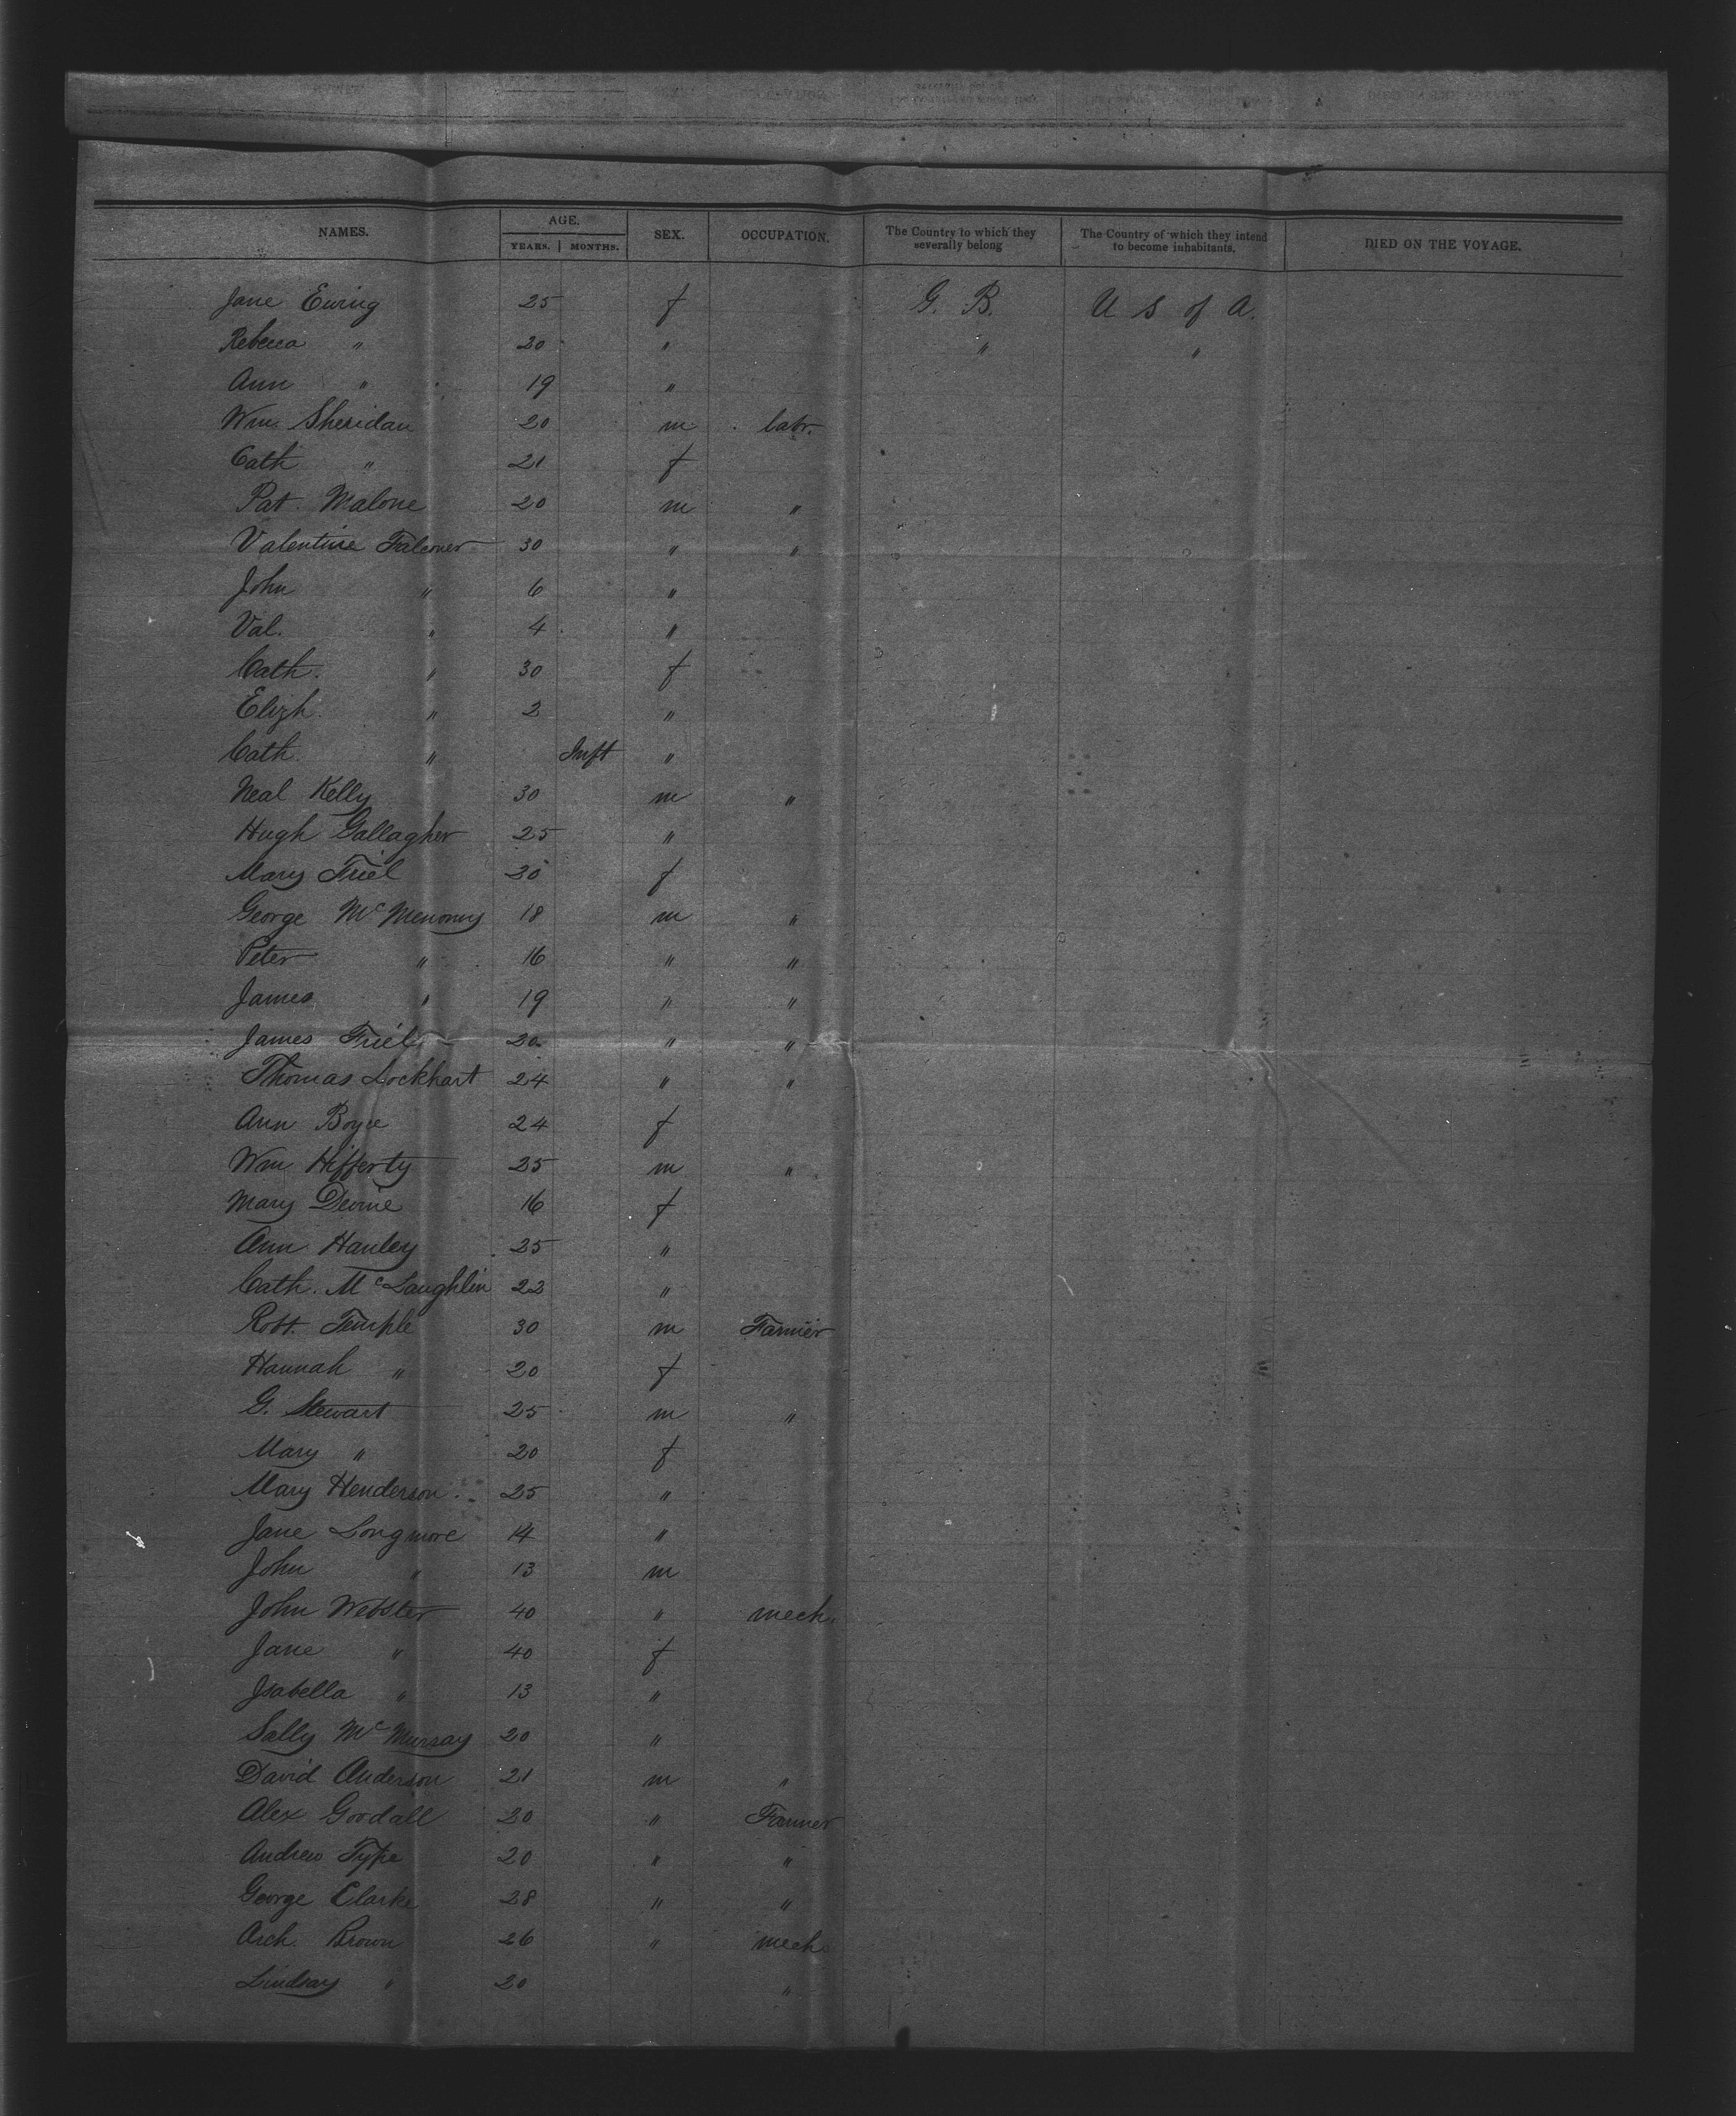 NAMES. AGE. YEARS. MONTHS. SEX. OCCUPATION. The Country to which they severally belong The Country of which they intend to become inhabitants. DIED ON THE VOYAGE.
Jane Ewing 25 f G. B. U S of A.
Rebecca " 20 " " "
Ann " 19 "
Wm. Sheridan 20 m labr.
Cath " 21 f
Pat. Malone 20 m "
Valentine Falconer 30 " "
John " 6 "
Val. " 4 "
Cath. " 30 f
Elizh. " 2 "
Cath. " Inft "
Neal Kelly 30 m "
Hugh Gallagher 25 "
Mary Friel 30 f
George McMenomy 18 m "
Peter " 16 " "
James " 19 " "
James Friel 20 " "
Thomas Lockhart 24 " "
Ann Boyce 24 f
Wm. Hifferty 25 m "
Mary Devine 16 f
Ann Hanley 25 "
Cath. McLaughlin 22 "
Robt. Temple 30 m Farmer
Hannah " 20 f
G. Stewart 25 m "
Mary " 20 f
Mary Henderson 25 "
Jane Longmore 14 "
John " 13 m
John Webster 40 " mech.
Jane " 40 f
Isabella " 13 "
Sally McMurray 20 "
David Anderson 21 m "
Alex Goodall 20 " Farmer
Andrew Type 20 " "
George Clarke 28 " "
Arch. Brown 26 " mech
Lindsay " 20 "